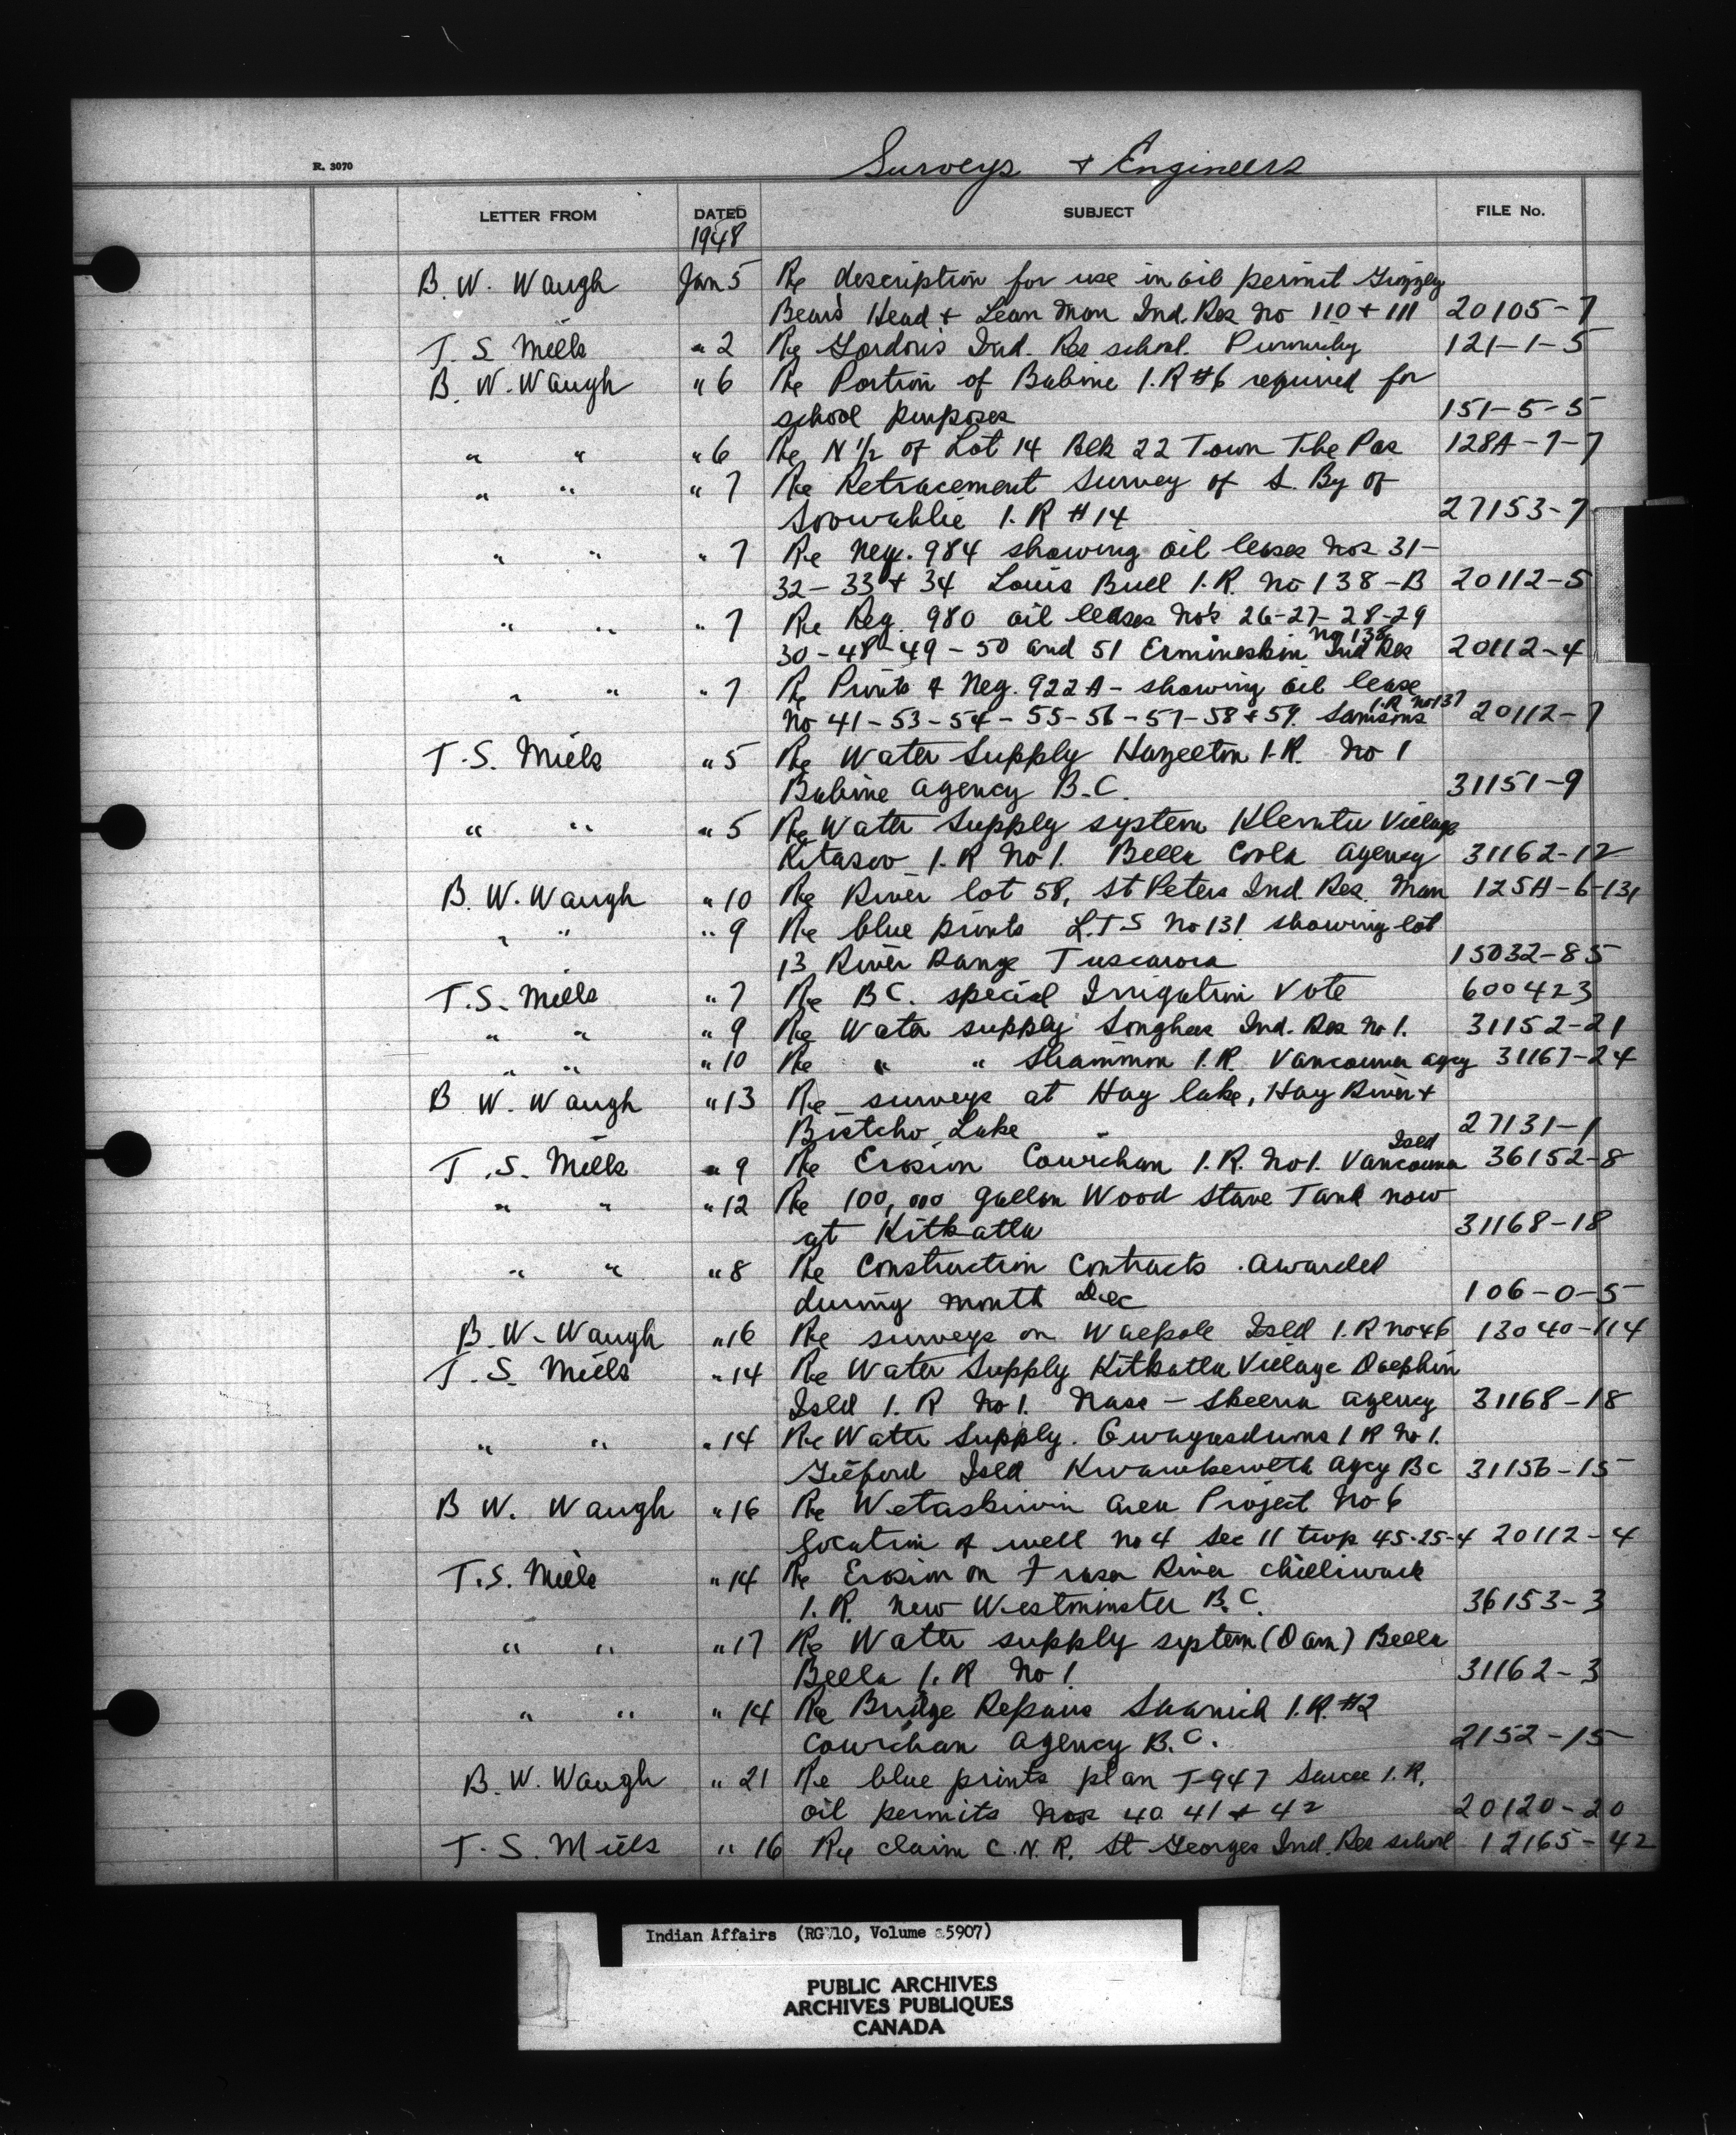 R. 3070
Surveys & Engineers
LETTER FROM DATED SUBJECT FILE No.
1948
B. W. Waugh Jan 5 Re description for use in oil permit Grizzly
Bear's Head & Lean Man Ind. Res No 110 & 111 20105-7
T. S. Mills " 2 Re Gordon's Ind. Res school. 121-1-5
B. W. Waugh " 6 Re Portion of Babine I.R #6 required for
school purposes 151-5-5
" " " 6 Re N 1/2 of Lot 14 Blk 22 Town The Pas 128A-7-7
" " " 7 Re Retracement Survey of S. By of
Soowahlie I.R #14 27153-7
" " " 7 Re Neg. 984 showing oil leases Nos 31-
32-33 & 34 Louis Bull I.R. No 138-B 20112-5
" " " 7 Re Reg. 980 oil leases No's 26-27-28-29
No 138
30-48-49-50 and 51 Ermineskin Ind Res 20112-4
" " " 7 Re Prints & Neg. 922A - showing oil lease
I.R No137
No 41-53-54-55-56-57-58 & 59. Samsons 20112-7
T. S. Mills " 5 Re Water Supply Hazelton I.R. No 1
Babine Agency B.C. 31151-9
" " " 5 Re Water Supply system Klemtu Village
Kitasoo I.R No 1. Bella Coola Agency 31162-12
B. W. Waugh " 10 Re River lot 58, St Peters Ind. Res. Man 125A-6-131
" " " 9 Re blue prints L.T.S No 131 showing lot
13 River Range Tuscarora 15032-85
T. S. Mills " 7 Re B.C. special Irrigation Vote 600423
" " " 9 Re Water supply Songhees Ind. Res No 1. 31152-21
" " " 10 Re " " Sliammon I.R. Vancouver agcy 31167-24
B. W. Waugh " 13 Re surveys at Hay lake, Hay River &
Bistcho Lake 27131-1
Isld
T. S. Mills " 9 Re Erosion Cowichan I.R. No1. Vancouver 36152-8
" " " 12 Re 100,000 gallon Wood Stave Tank now
at Kitkatla 31168-18
" " " 8 Re Construction Contracts awarded
during month Dec 106-0-5
B. W. Waugh " 16 Re surveys on Walpole Isld I.R no 46 13040-114
T. S. Mills " 14 Re Water Supply Kitkatla Village Dolphin
Isld I. R No 1. Nass - Skeena Agency 31168-18
" " " 14 Re Water Supply. Gwayasdums I R No 1.
Gilford Isld Kwawkewlth Agcy BC 31156-15
B W. Waugh " 16 Re Wetaskiwin area Project No 6
location of well no 4 Sec 11 twp 45-25-4 20112-4
T. S. Mills " 14 Re Erosion on Fraser River Chilliwack
I.R. New Westminster B.C. 36153-3
" " " 17 Re Water supply system (Dam) Bella
Bella I.R No 1 31162-3
" " " 14 Re Bridge Repairs Saanich I.R. #2
Cowichan Agency B.C. 2152-15
B. W. Waugh " 21 Re blue prints plan T-947 Sarcee I.R.
oil permits Nos 40 41 & 42 20120-20
T. S. Mills " 16 Re claim C.N.R. St Georges Ind. Res school 12165-42
Indian Affairs (RG 10, Volume 5907)
PUBLIC ARCHIVES
ARCHIVES PUBLIQUES
CANADA